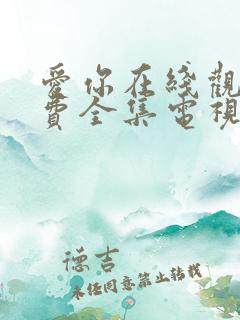 愛你在綫觀
費全集電視
德吉
未经同意禁止转载